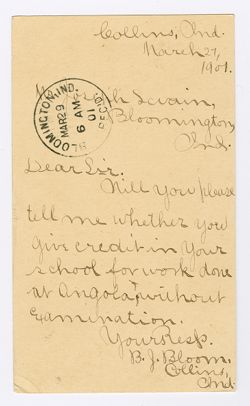 Collins, Ind.
March 27,
1901.
Swain,
Bloomington,
Ind.
BLOOMINGTON, IND.
MAR 29
6 AM
01
REC'D
Dear Sir:
Will you please
tell me whether you
give credit in your
school for work done
at Angola, without
examination.
Yours Resp.
B. J. Bloom.
Collins,
Ind.